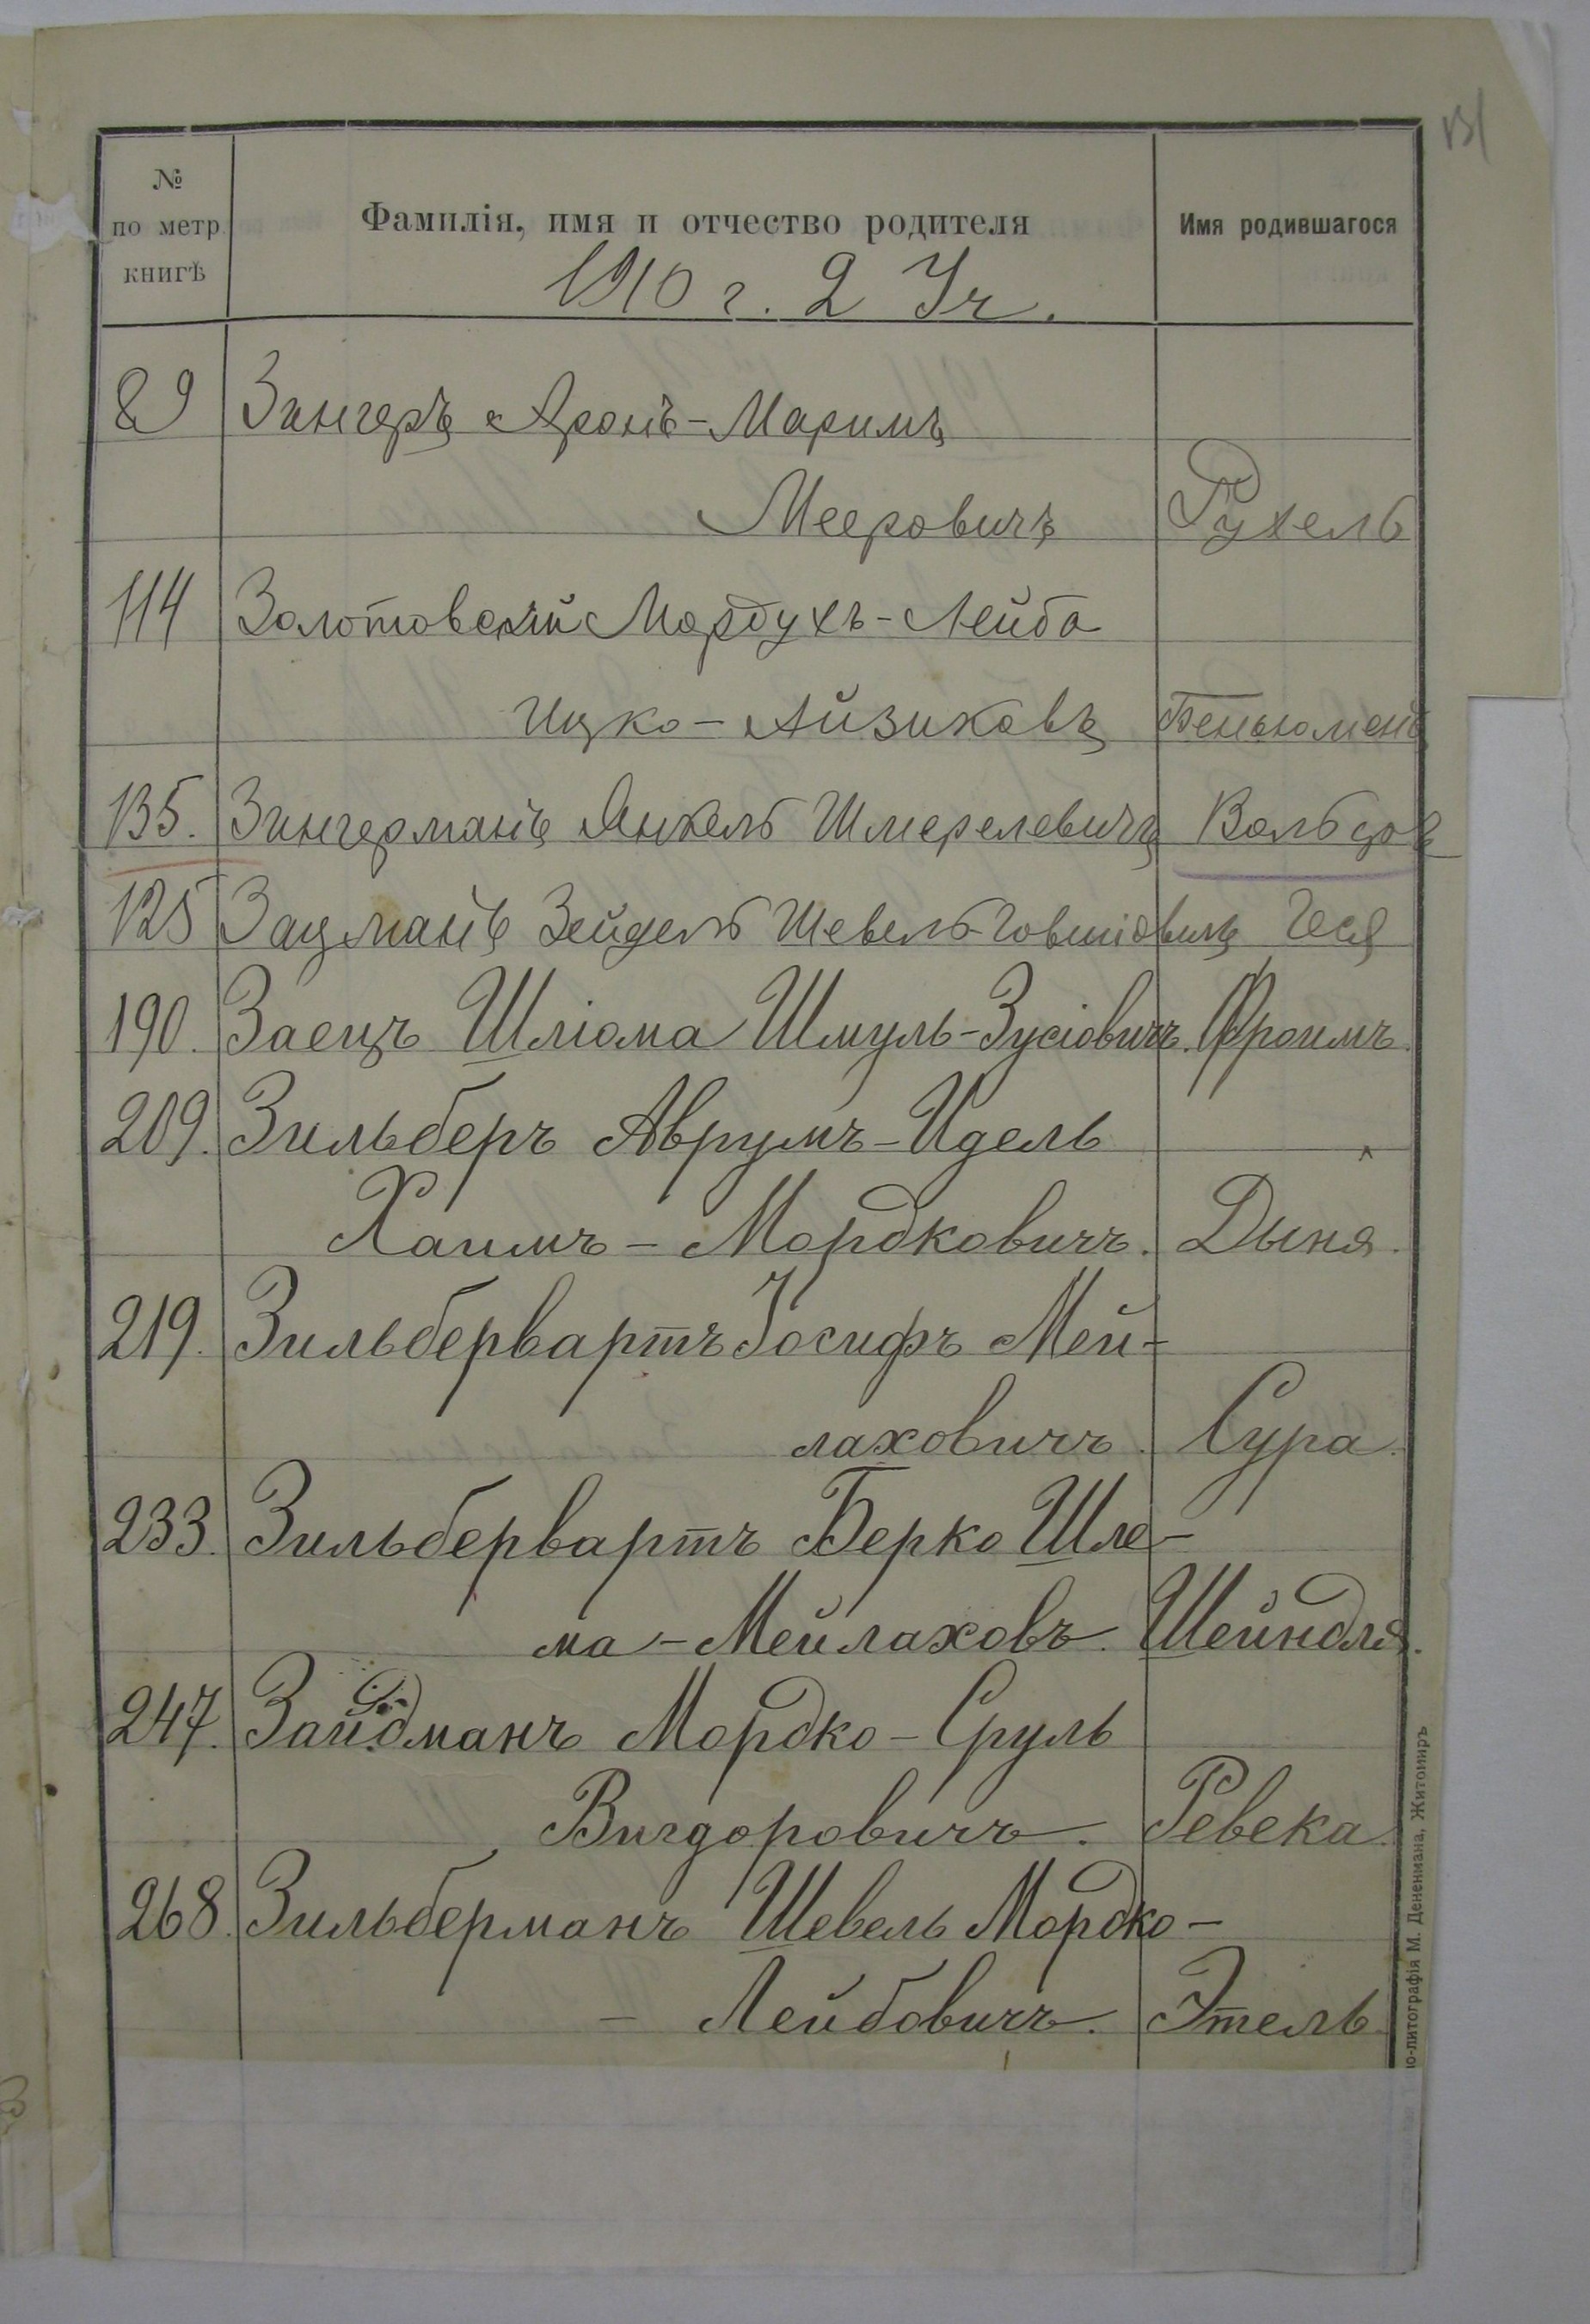 131
№
по метр.
книгѣ
Фамилія, имя и отчество родителя
Имя родившагося
1910 г. 2 Уч.
89 Зингеръ Аронъ-Маримъ
Мееровичъ Рухель
114 Золотовскій Мордухъ-Лейба
Ицко-Айзиковъ Беньюменъ
135. Зингерманъ Янкель Шмерелевичъ Вольфъ
125 Зацманъ Зейдель Шевель-Говшіовичъ Геся
190. Заецъ Шліома Шмуль-Зусіовичъ. Фроимъ.
209. Зильберъ Аврумъ-Идель
Хаимъ-Мордковичъ. Дыня.
219. Зильбервартъ Іосифъ Мей-
лаховичъ. Сура.
233. Зильбервартъ Берко Шле-
ма-Мейлаховъ. Шейндля.
247. Зайдманъ Мордко-Сруль
Вигдоровичъ. Ревека.
268. Зильберманъ Шевель Мордко-
- Лейбовичъ. Этель.
о-литографія М. Дененмана, Житомиръ